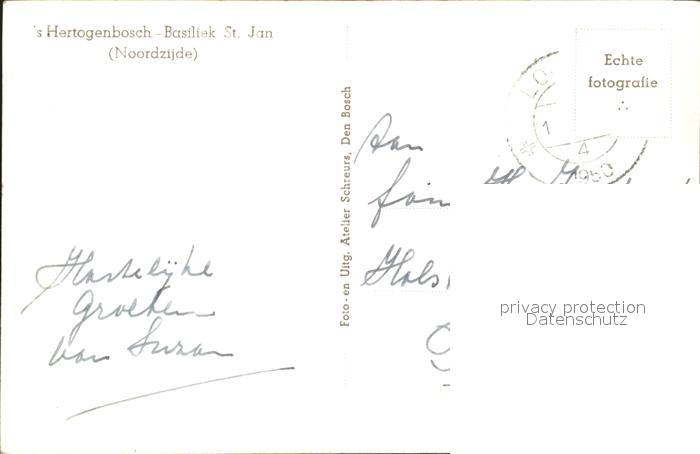 's Hertogenbosch - Basiliek St. Jan
(Noordzijde)
Hartelijke
Groeten
van Suzan
Foto- en Uitg. Atelier Schreurs, Den Bosch
Echte
fotografie
LO
1
4
1950
Aan
fam
Hols
privacy protection
Datenschutz